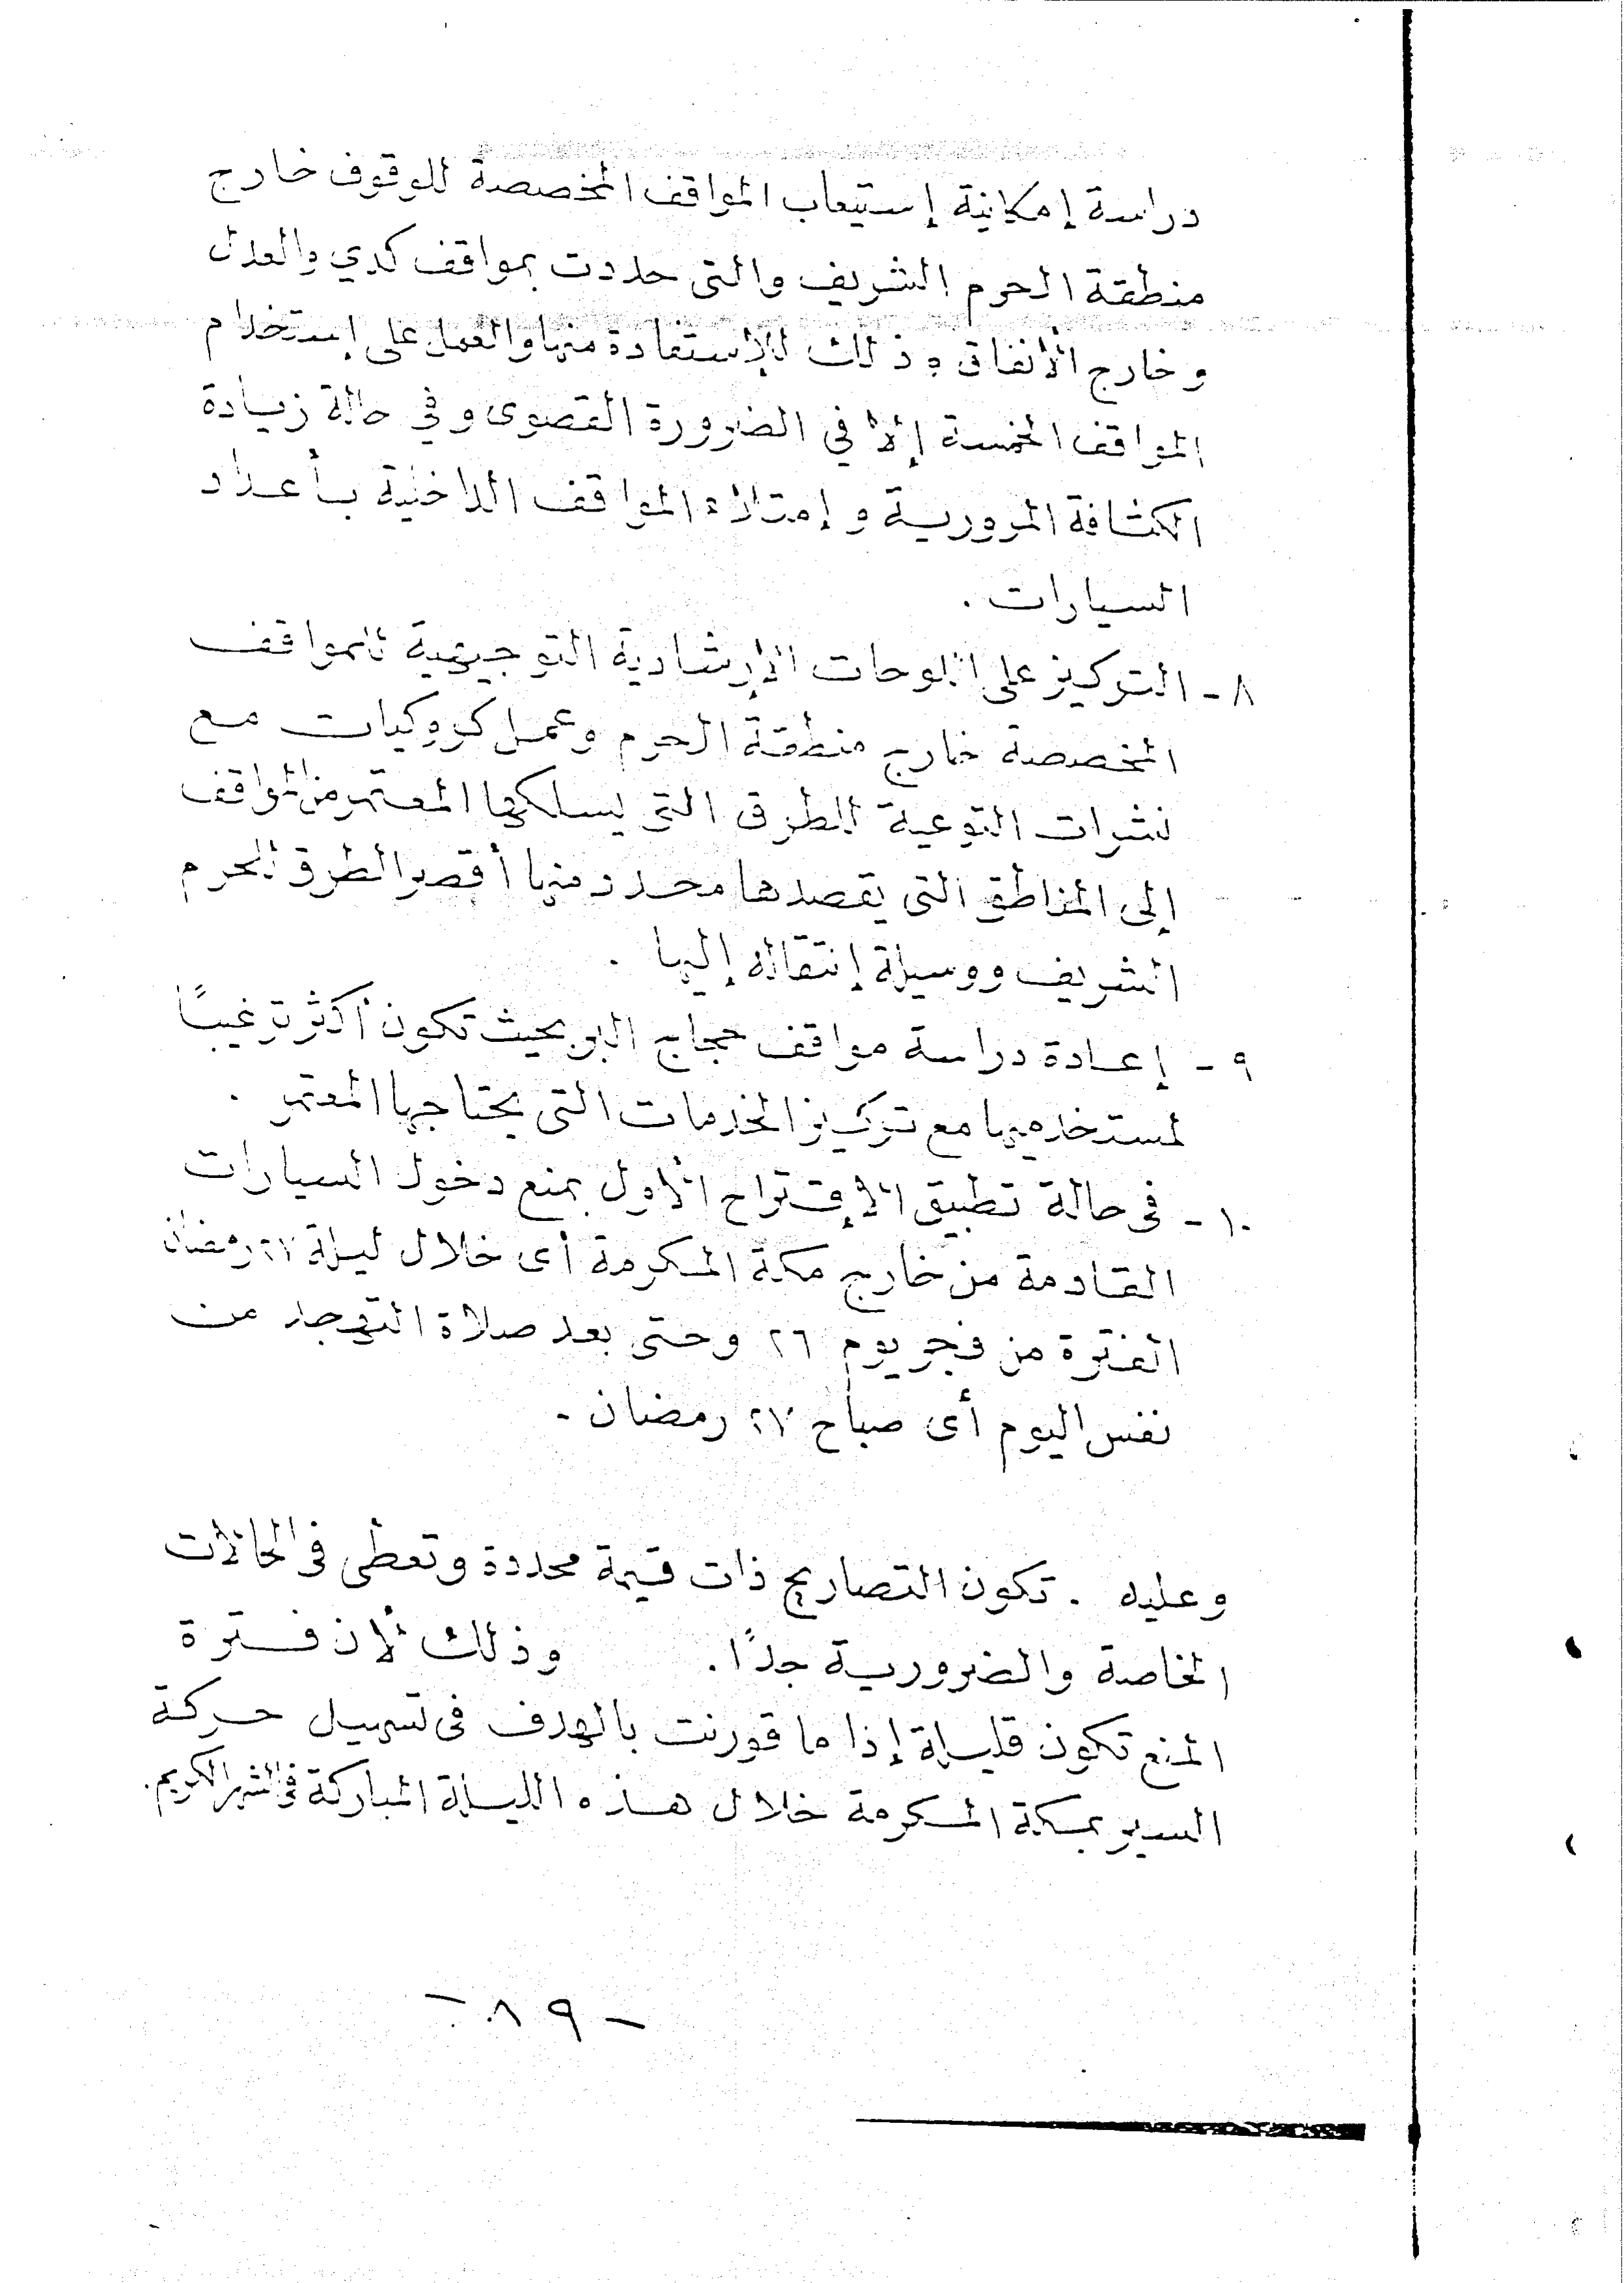 دراسة إمكانية إستيعاب المواقف المخصصة للوقوف خارج
منطقة الحرم الشريف والتى حددت بمواقف كدي والعدل
وخارج الأنفاق وذلك للإستفادة منها والعمل على إستخدام
المواقف الخمسة إلا في الضرورة القصوى وفي حالة زيادة
الكثافة المرورية وإمتلاء المواقف الداخلية بأعداد
السيارات .
٨ - التركيز على اللوحات الإرشادية التوجيهية للمواقف
المخصصة خارج منطقة الحرم وعمل كروكيات مع
نشرات التوعية للطرق التى يسلكها المعتمر من المواقف
إلى المناطق التى يقصدها محدد منها أقصر الطرق للحرم
الشريف ووسيلة إنتقاله إليها .
٩ - إعادة دراسة مواقف حجاج البر بحيث تكون أكثر ترغيبًا
لمستخدميها مع تركيز الخدمات التى يحتاجها المعتمر .
١٠ - فى حالة تطبيق الإقتراح الأول بمنع دخول السيارات
القادمة من خارج مكة المكرمة أى خلال ليلة ٢٧ رمضان
الفترة من فجر يوم ٢٦ وحتى بعد صلاة التهجد من
نفس اليوم أى صباح ٢٧ رمضان -
وعليه . تكون التصاريح ذات قيمة محددة وتعطى فى الحالات
الخاصة والضرورية جدًا . وذلك لأن فترة
المنع تكون قليلة إذا ما قورنت بالهدف فى تسهيل حركة
السير بمكة المكرمة خلال هذه الليلة المباركة فى الشهر الكريم .
- ٨٩ -